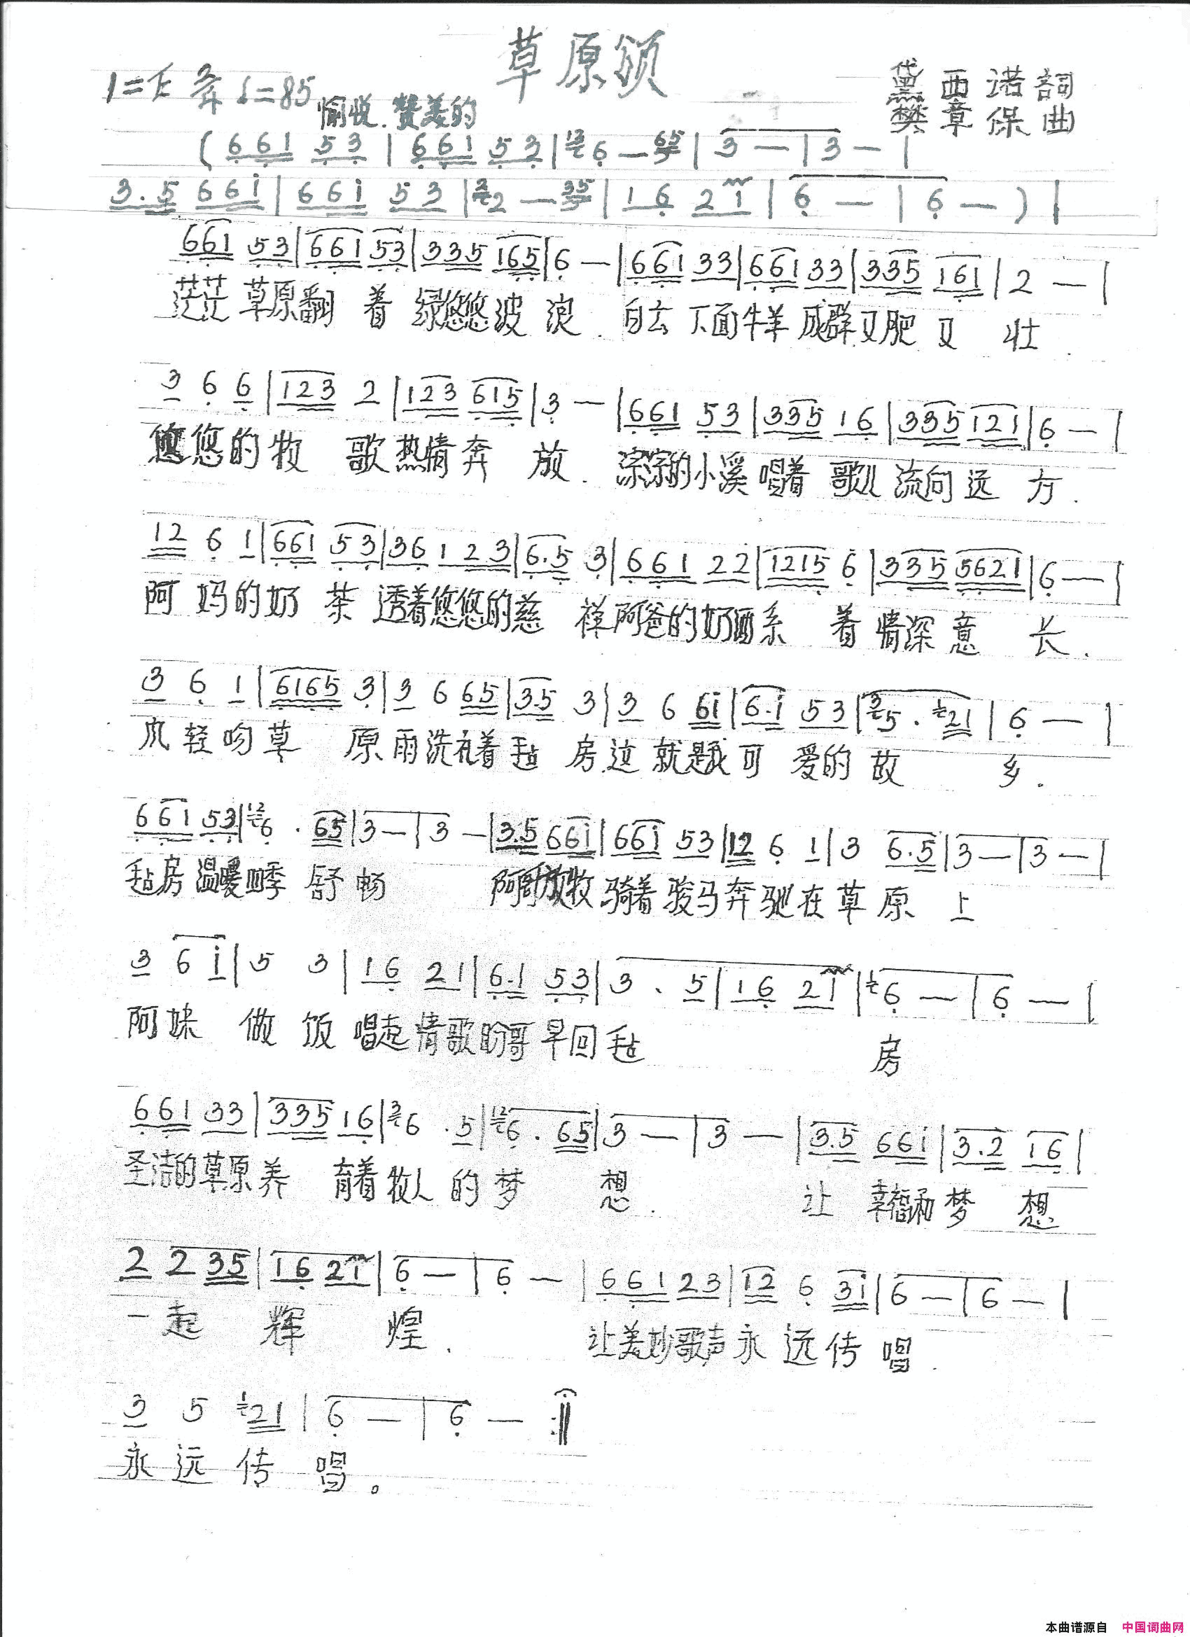 草原颂
1=E 2/4 ♩=85
愉悦.赞美的
黛西诺詞
樊章保曲
(661 53|661 53|6—65|3—|3—|
3.5 66i|66i 53|2—35|16 21|6—|6—)|
661 53|661 53|335 165|6—|661 33|661 33|335 161|2—|
茫茫草原翻着绿悠悠波浪.白云下面牛羊成群又肥又壮.
3 6 6|123 2|123 615|3—|661 53|335 16|335 121|6—|
悠悠的牧歌热情奔放.淙淙的小溪唱着歌儿流向远方.
12 6 1|661 53|36 123|6.5 3|661 22|1215 6|335 5621|6—|
阿妈的奶茶透着悠悠的慈祥阿爸的奶酒系着情深意长.
3 6 1|6165 3|3 6 65|3.5 3|3 6 6i|6.i 53|5.21|6—|
风轻吻草原雨洗礼着毡房.这就是我可爱的故乡.
661 53|6.65|3—|3—|3.5 66i|66i 53|12 6 1|3 6.5|3—|3—|
毡房温暖四季舒畅 阿哥放牧骑着骏马奔驰在草原上
3 6 i|5 3|16 21|6.1 53|3.5|16 21|6—|6—|
阿妹做饭唱起情歌盼哥早回毡房
661 33|335 16|6.5|6.65|3—|3—|3.5 66i|3.2 16|
圣洁的草原养育着牧人的梦想.让幸福和梦想
2 2 35|16 21|6—|6—|661 23|12 6 3i|6—|6—|
一起辉煌.让美妙歌声永远传唱.
3 5 21|6—|6—:‖
永远传唱。
本曲谱源自 中国词曲网